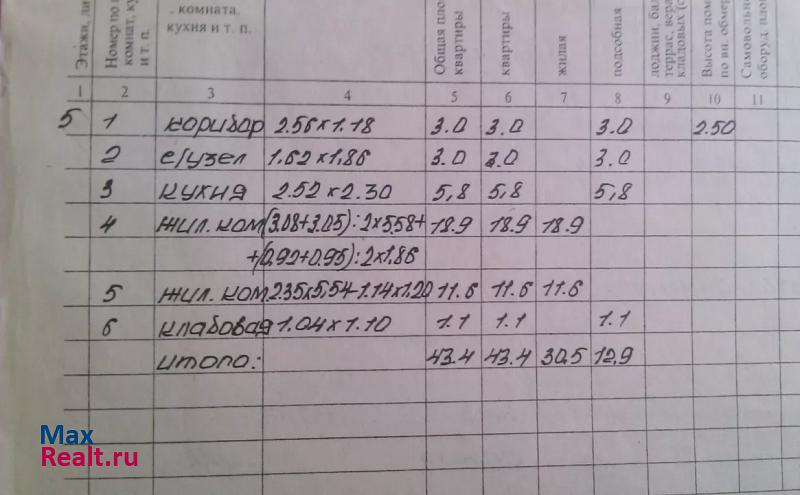 Этажи, ли
Номер по
комнат, ку
и т. п.
комната,
кухня и т. п.
Общая пло
квартиры
квартиры
жилая
подсобная
лоджии, бал
террас, вера
кладовых (с
Высота пом
по вн. обмер
Самовольно
оборуд. пло
1 2 3 4 5 6 7 8 9 10 11
5 1 коридор 2.56×1.18 3.0 3.0 3.0 2.50
2 с/узел 1.62×1,86 3.0 3.0 3.0
3 кухня 2.52×2.30 5,8 5,8 5,8
4 жил. ком (3.08+3.05):2×5.58+ 18.9 18.9 18.9
+(0,92+0,95):2×1,86
5 жил. ком 2.35×5,54-1.14×1,20 11.6 11.6 11.6
6 кладовая 1.04×1.10 1.1 1.1 1.1
итого: 43.4 43.4 30,5 12,9
Max
Realt.ru